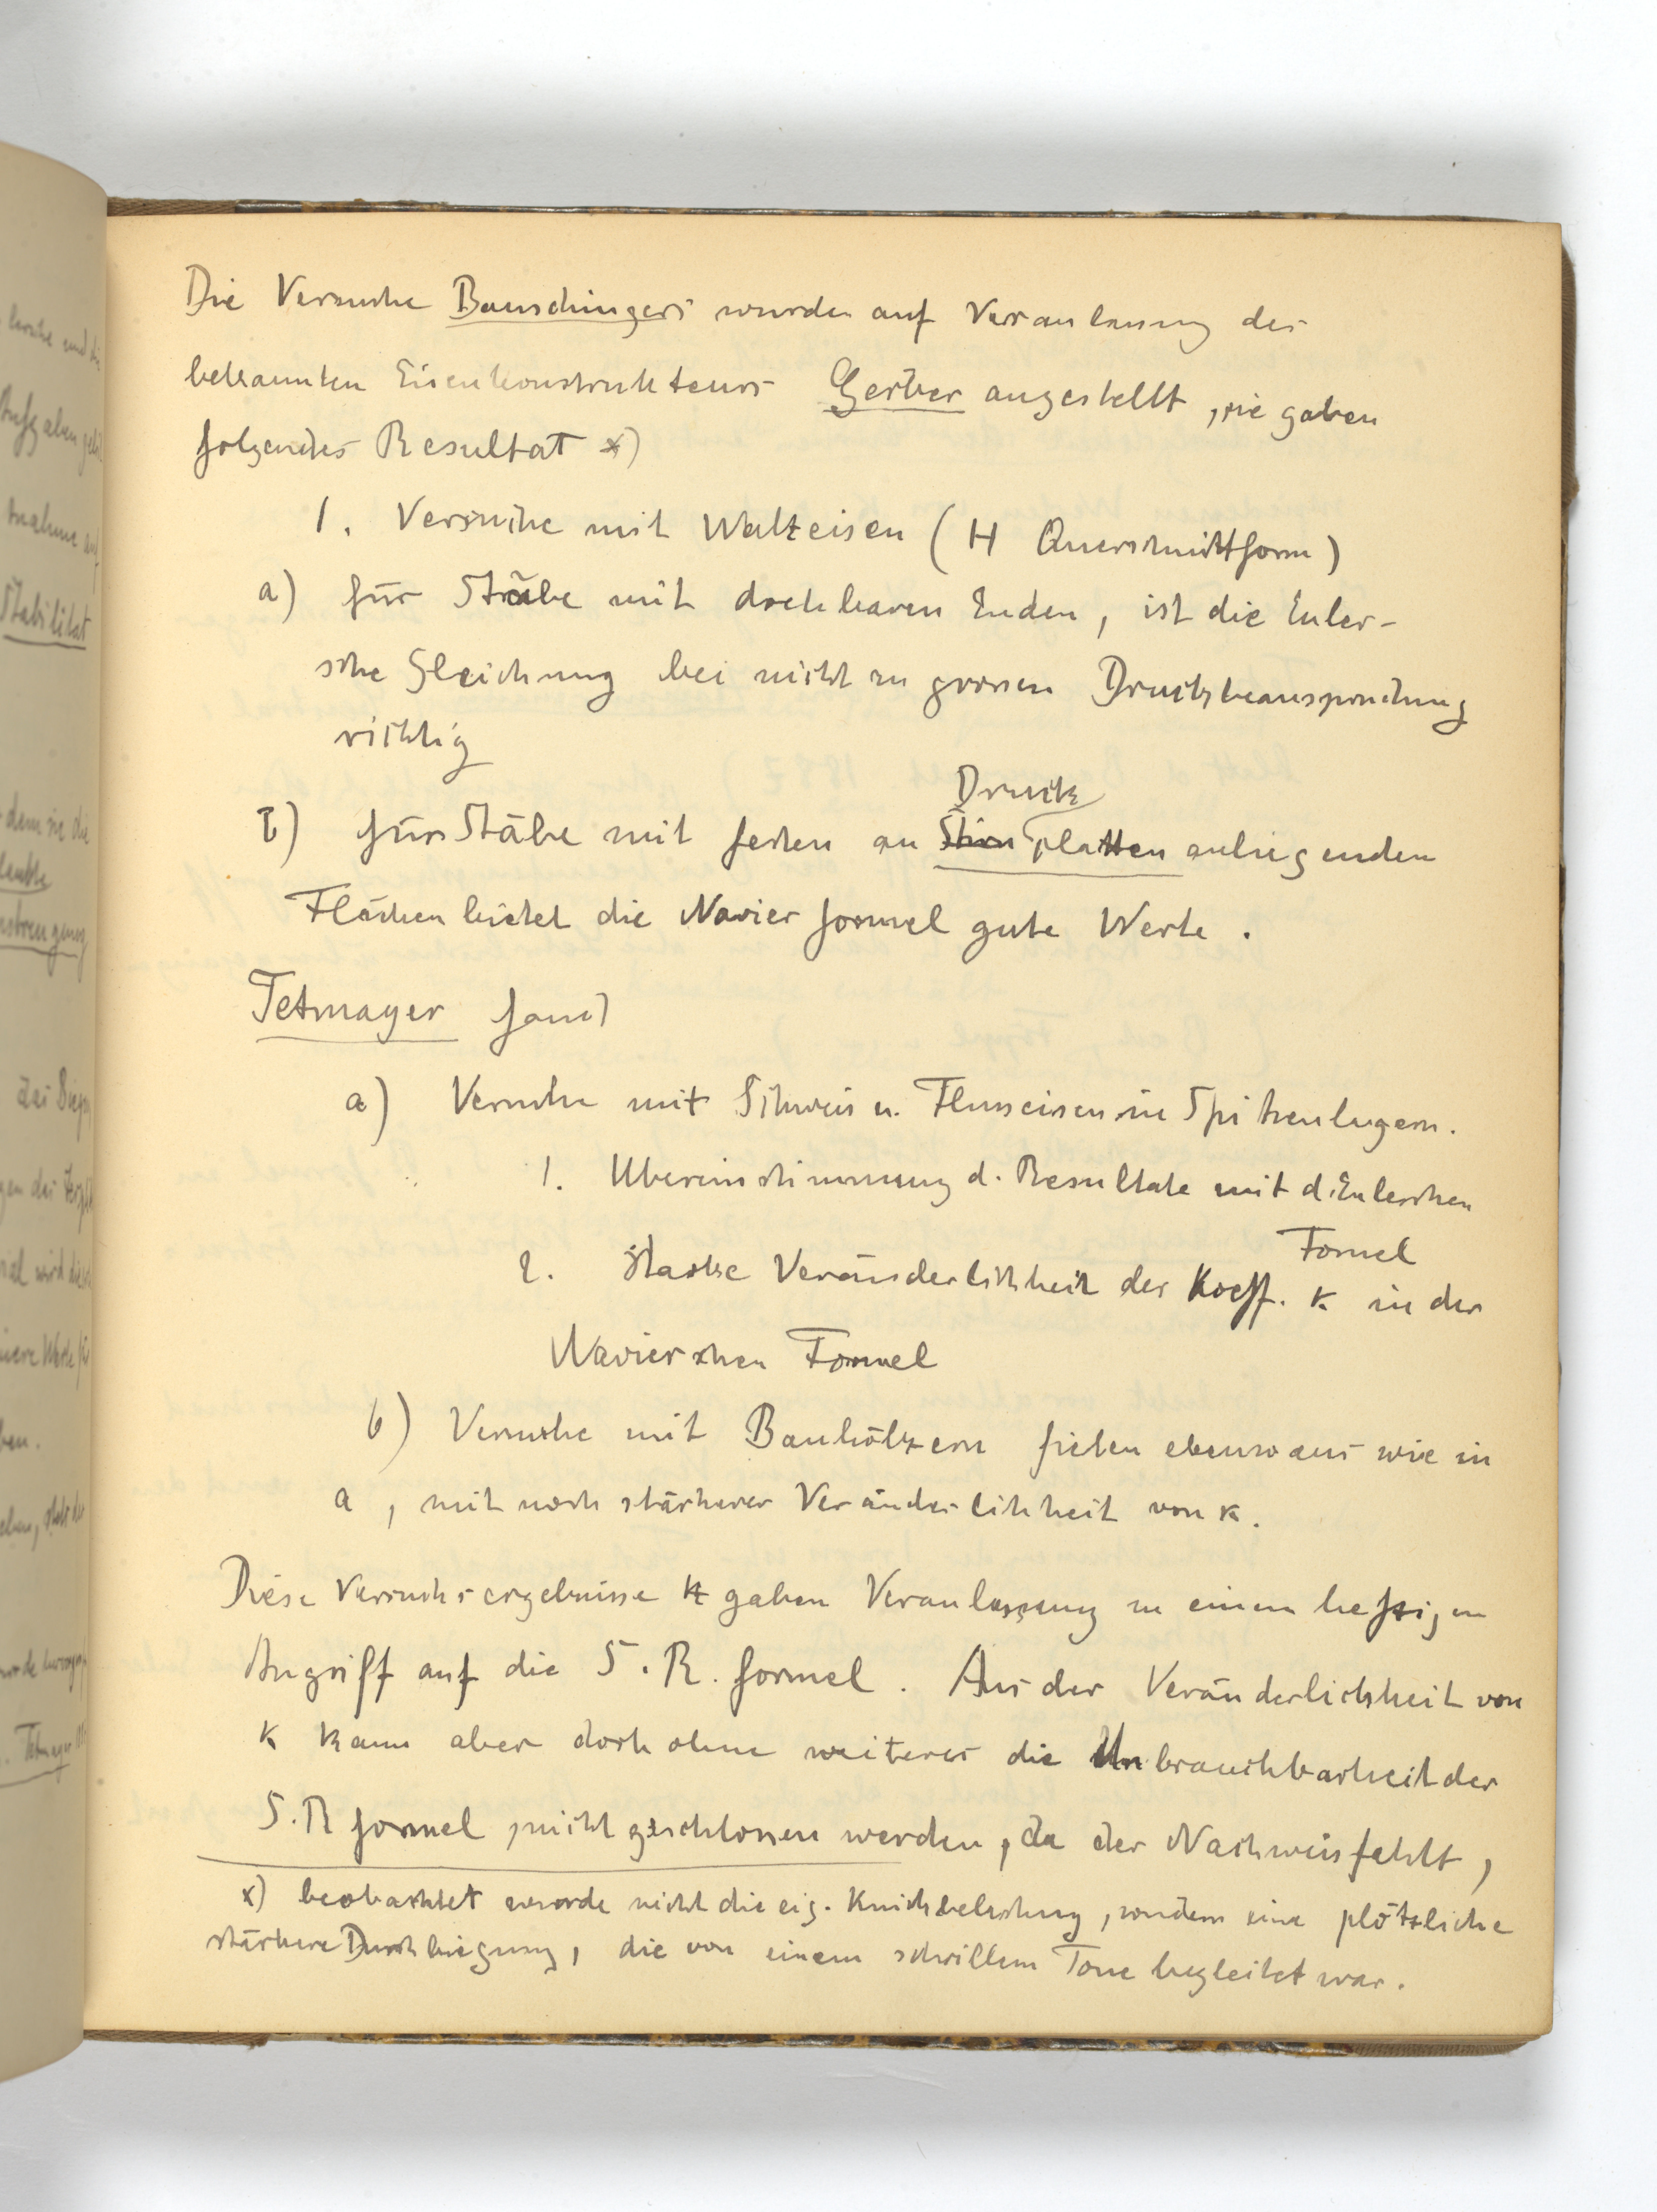 Die Versuche Bauschingers wurden auf Veranlassung des
bekannten Eisenkonstrukteurs Gerber angestellt, sie gaben
folgendes Resultat x)
1. Versuche mit Walzeisen (H Querschnittform)
a) für Stäbe mit drehbaren Enden, ist die Euler-
sche Gleichung bei nicht zu grossen Druckbeanspruchung
richtig
Druck
b) für Stäbe mit festen an Stirn platten anliegenden
Flächen leistet die Navier formel gute Werte.
Tetmayer fand
a) Versuche mit Schweis u. Flusseisen in Spitzenlagern.
1. Übereinstimmung d. Resultate mit d. Eulerschen
Formel
2. starke Veränderlichkeit des Koeff. κ in der
Navierschen Formel
b) Versuche mit Bauhölzern fielen ebenso aus wie in
a, mit noch stärkerer Veränderlichkeit von κ.
Diese Versuchsergebnisse gaben Veranlassung zu einem heftigen
Angriff auf die S. R. formel. Aus der Veränderlichkeit von
κ kann aber doch ohne weiteres die Unbrauchbarkeit der
S. R formel nicht geschlossen werden, da der Nachweis fehlt,
x) beobachtet wurde nicht die eig. Knickbelastung, sondern eine plötzliche
stärkere Durchbiegung, die von einem schrillem Tone begleitet war.
Stabilität